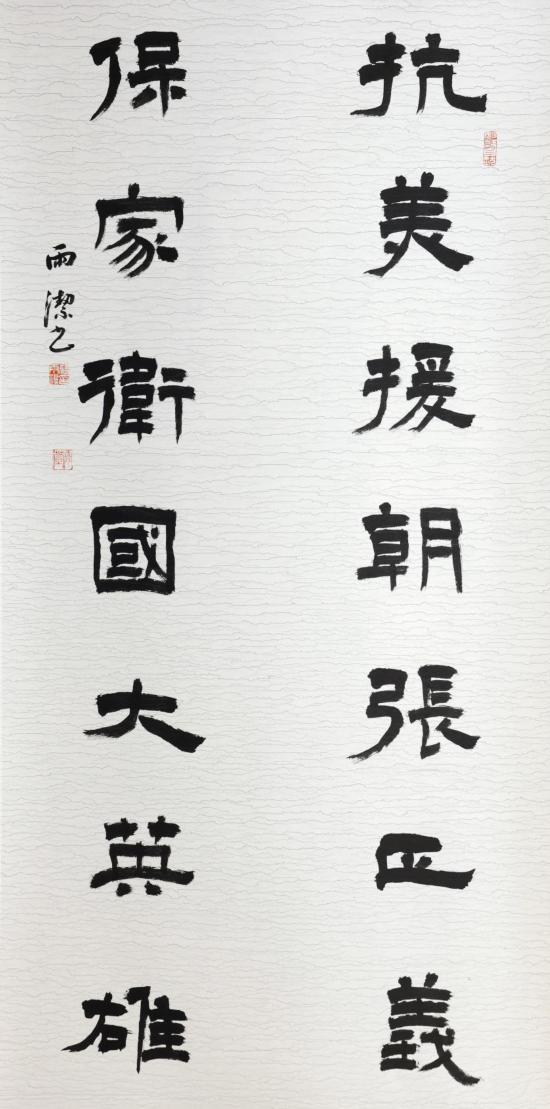 抗美援朝張正義
保家衛國大英雄
雨潔書